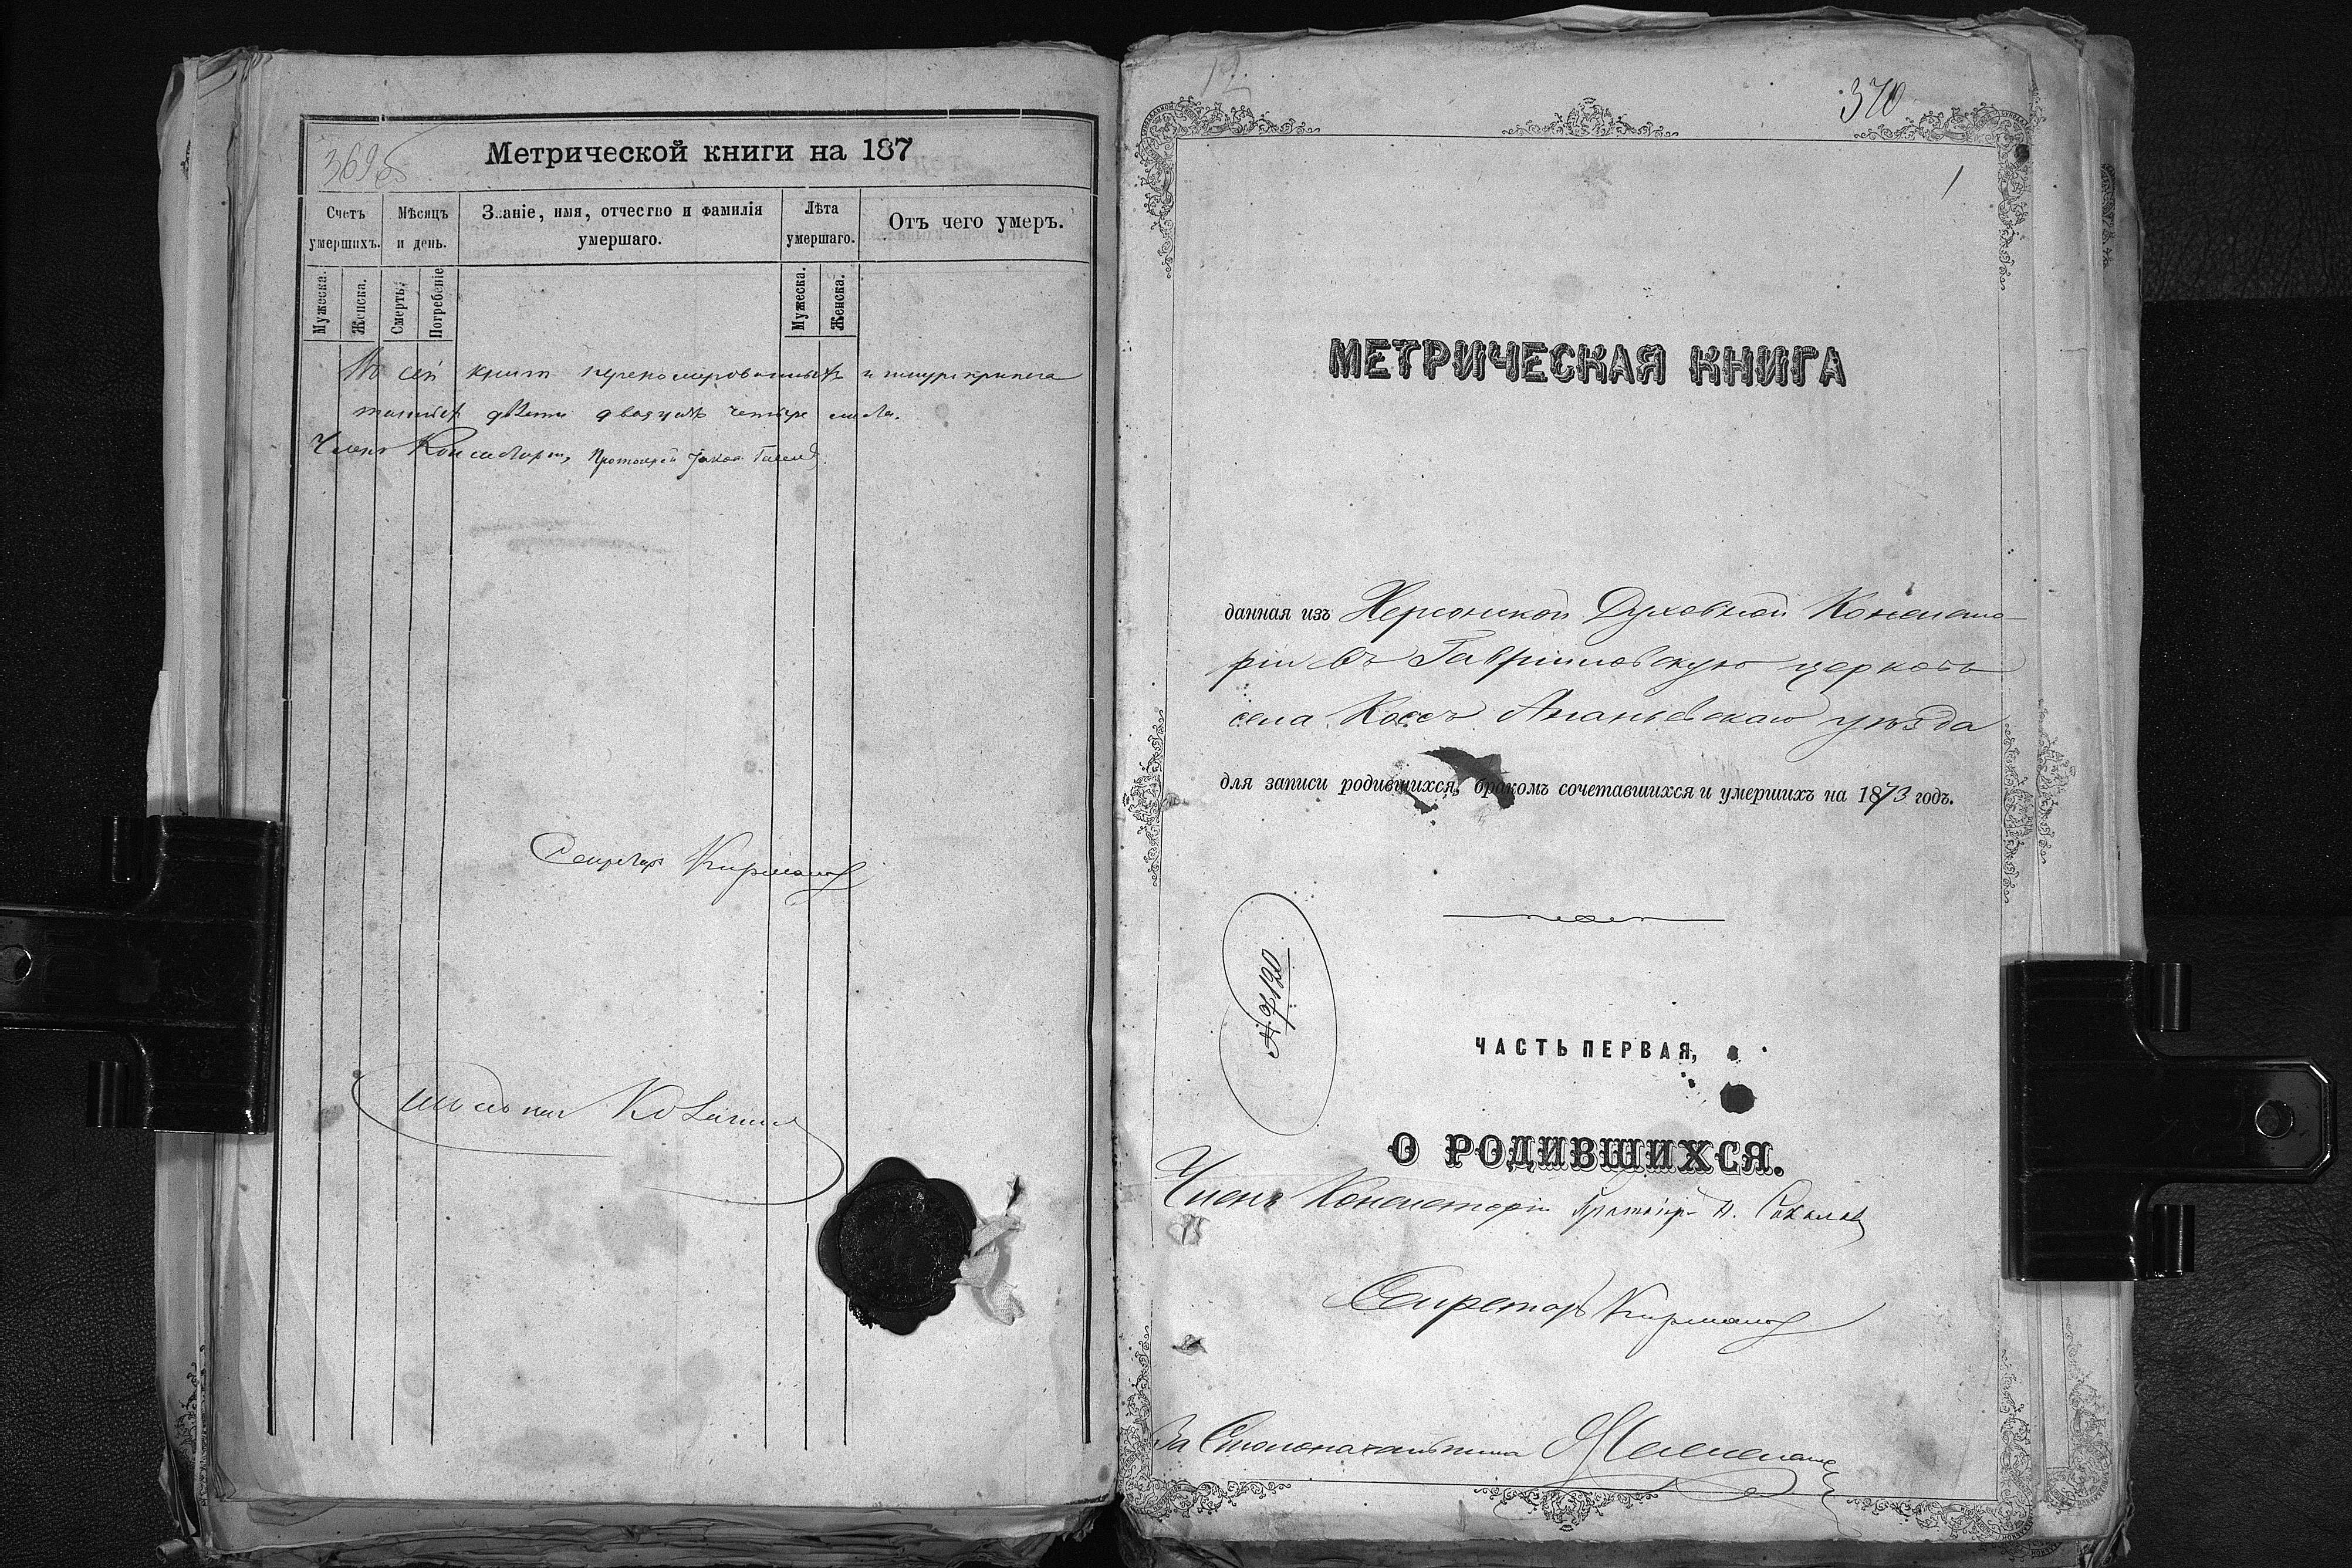 369об
Метрической книги на 187
Счетъ умершихъ.
Мѣсяцъ и день.
Званіе, имя, отчество и фамилія умершаго.
Лѣта умершаго.
Отъ чего умеръ.
Мужеска.
Женска.
Смерть.
Погребеніе
Мужеска.
Женска.
Въ сей книгѣ
двадцать четыре листа.
Членъ Консисторіи, Протоіерей
Секретарь
370
1
МЕТРИЧЕСКАЯ КНИГА
данная изъ Херсонской Духовной Консисто-
ріи въ Гавріиловскую церковь
села Коссъ Ананьевскаго уѣзда
для записи родившихся, бракомъ сочетавшихся и умершихъ на 1873 годъ.
№ 7120
ЧАСТЬ ПЕРВАЯ,
О РОДИВШИХСЯ.
Членъ Консисторіи Протоіерей А. Соколовъ
Секретарь
За Столоначальника